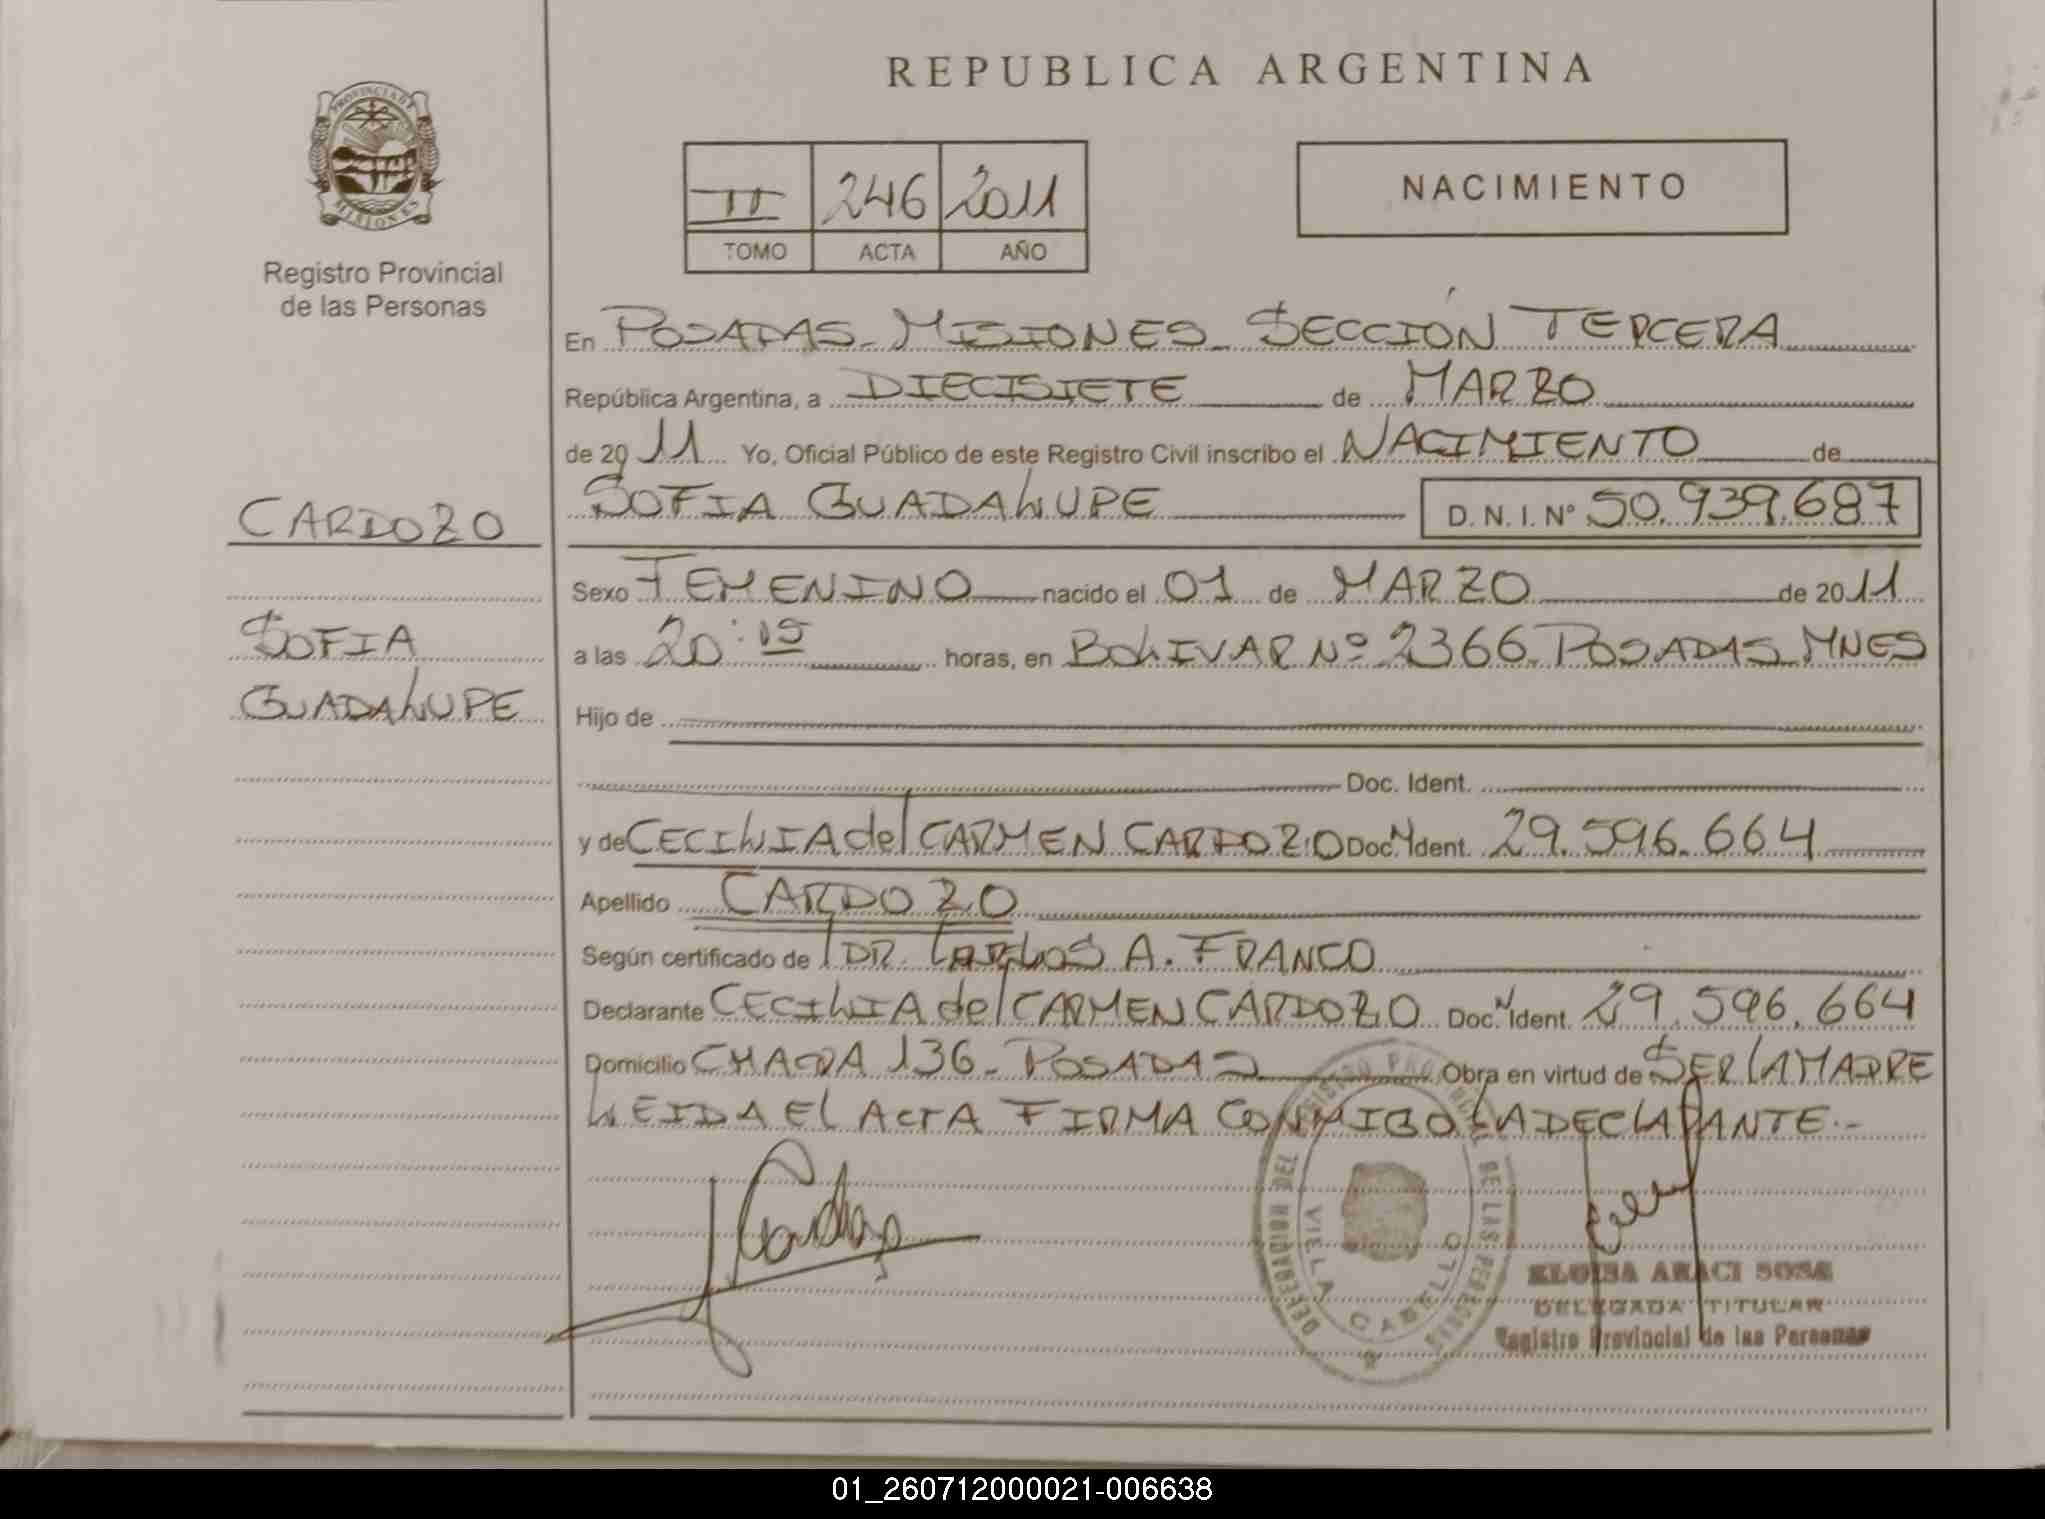 REPUBLICA ARGENTINA
PROVINCIA DE
MISIONES
Registro Provincial
de las Personas
II 246 2011
TOMO ACTA AÑO
NACIMIENTO
En POSADAS - MISIONES - SECCIÓN TERCERA
República Argentina, a DIECISIETE de MARZO
de 2011 Yo, Oficial Público de este Registro Civil inscribo el NACIMIENTO de
CARDOZO
SOFIA GUADALUPE D.N.I. Nº 50.939.687
Sexo FEMENINO nacido el 01 de MARZO de 2011
SOFIA
a las 20:15 horas, en BOLIVAR Nº 2366. POSADAS MNES
GUADALUPE
Hijo de
Doc. Ident.
y de CECILIA del CARMEN CARDOZO Doc. N Ident. 29.596.664
Apellido CARDOZO
Según certificado de DR. CARLOS A. FRANCO
Declarante CECILIA del CARMEN CARDOZO Doc. N Ident. 29.596.664
Domicilio CHACRA 136 - POSADAS Obra en virtud de SER LA MADRE
LEIDA El ACTA FIRMA CONMIGO LA DECLARANTE.-
DELEGACION DEL REGISTRO PROVINCIAL DE LAS PERSONAS
VILLA CABELLO
ELOISA ARACI SOSA
DELEGADA TITULAR
Registro Provincial de las Personas
01_260712000021-006638